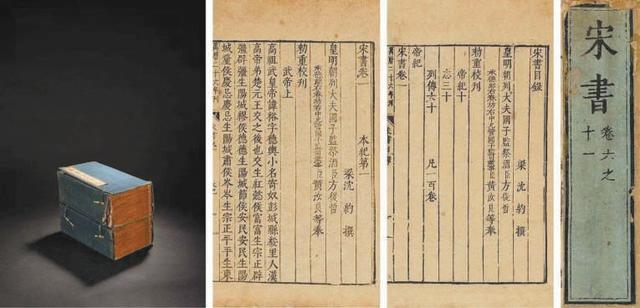 宋書
卷六之
十一
宋書目錄
梁 沈 約 撰
皇明朝列大夫國子監祭酒臣方從哲
黃汝良等奉
勅重校刊
帝紀十
志三十
列傳六十 凡一百卷
帝紀
宋書卷一
宋書卷一 本紀第一
梁 沈 約 撰
皇明朝列大夫國子監祭酒臣方從哲
黃汝良等奉
勅重校刊
武帝上
高祖武皇帝諱裕字德輿小名寄奴彭城縣綏里人漢
高帝弟楚元王交之後也交生紅懿侯富富生宗正辟
彊辟彊生陽城繆侯德德生陽城節侯安民安民生陽
城釐侯慶忌慶忌生陽城肅侯岑岑生宗正平平生東